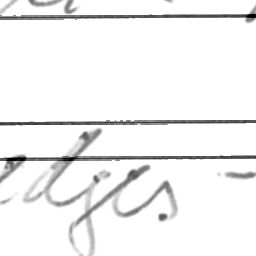 edges. -